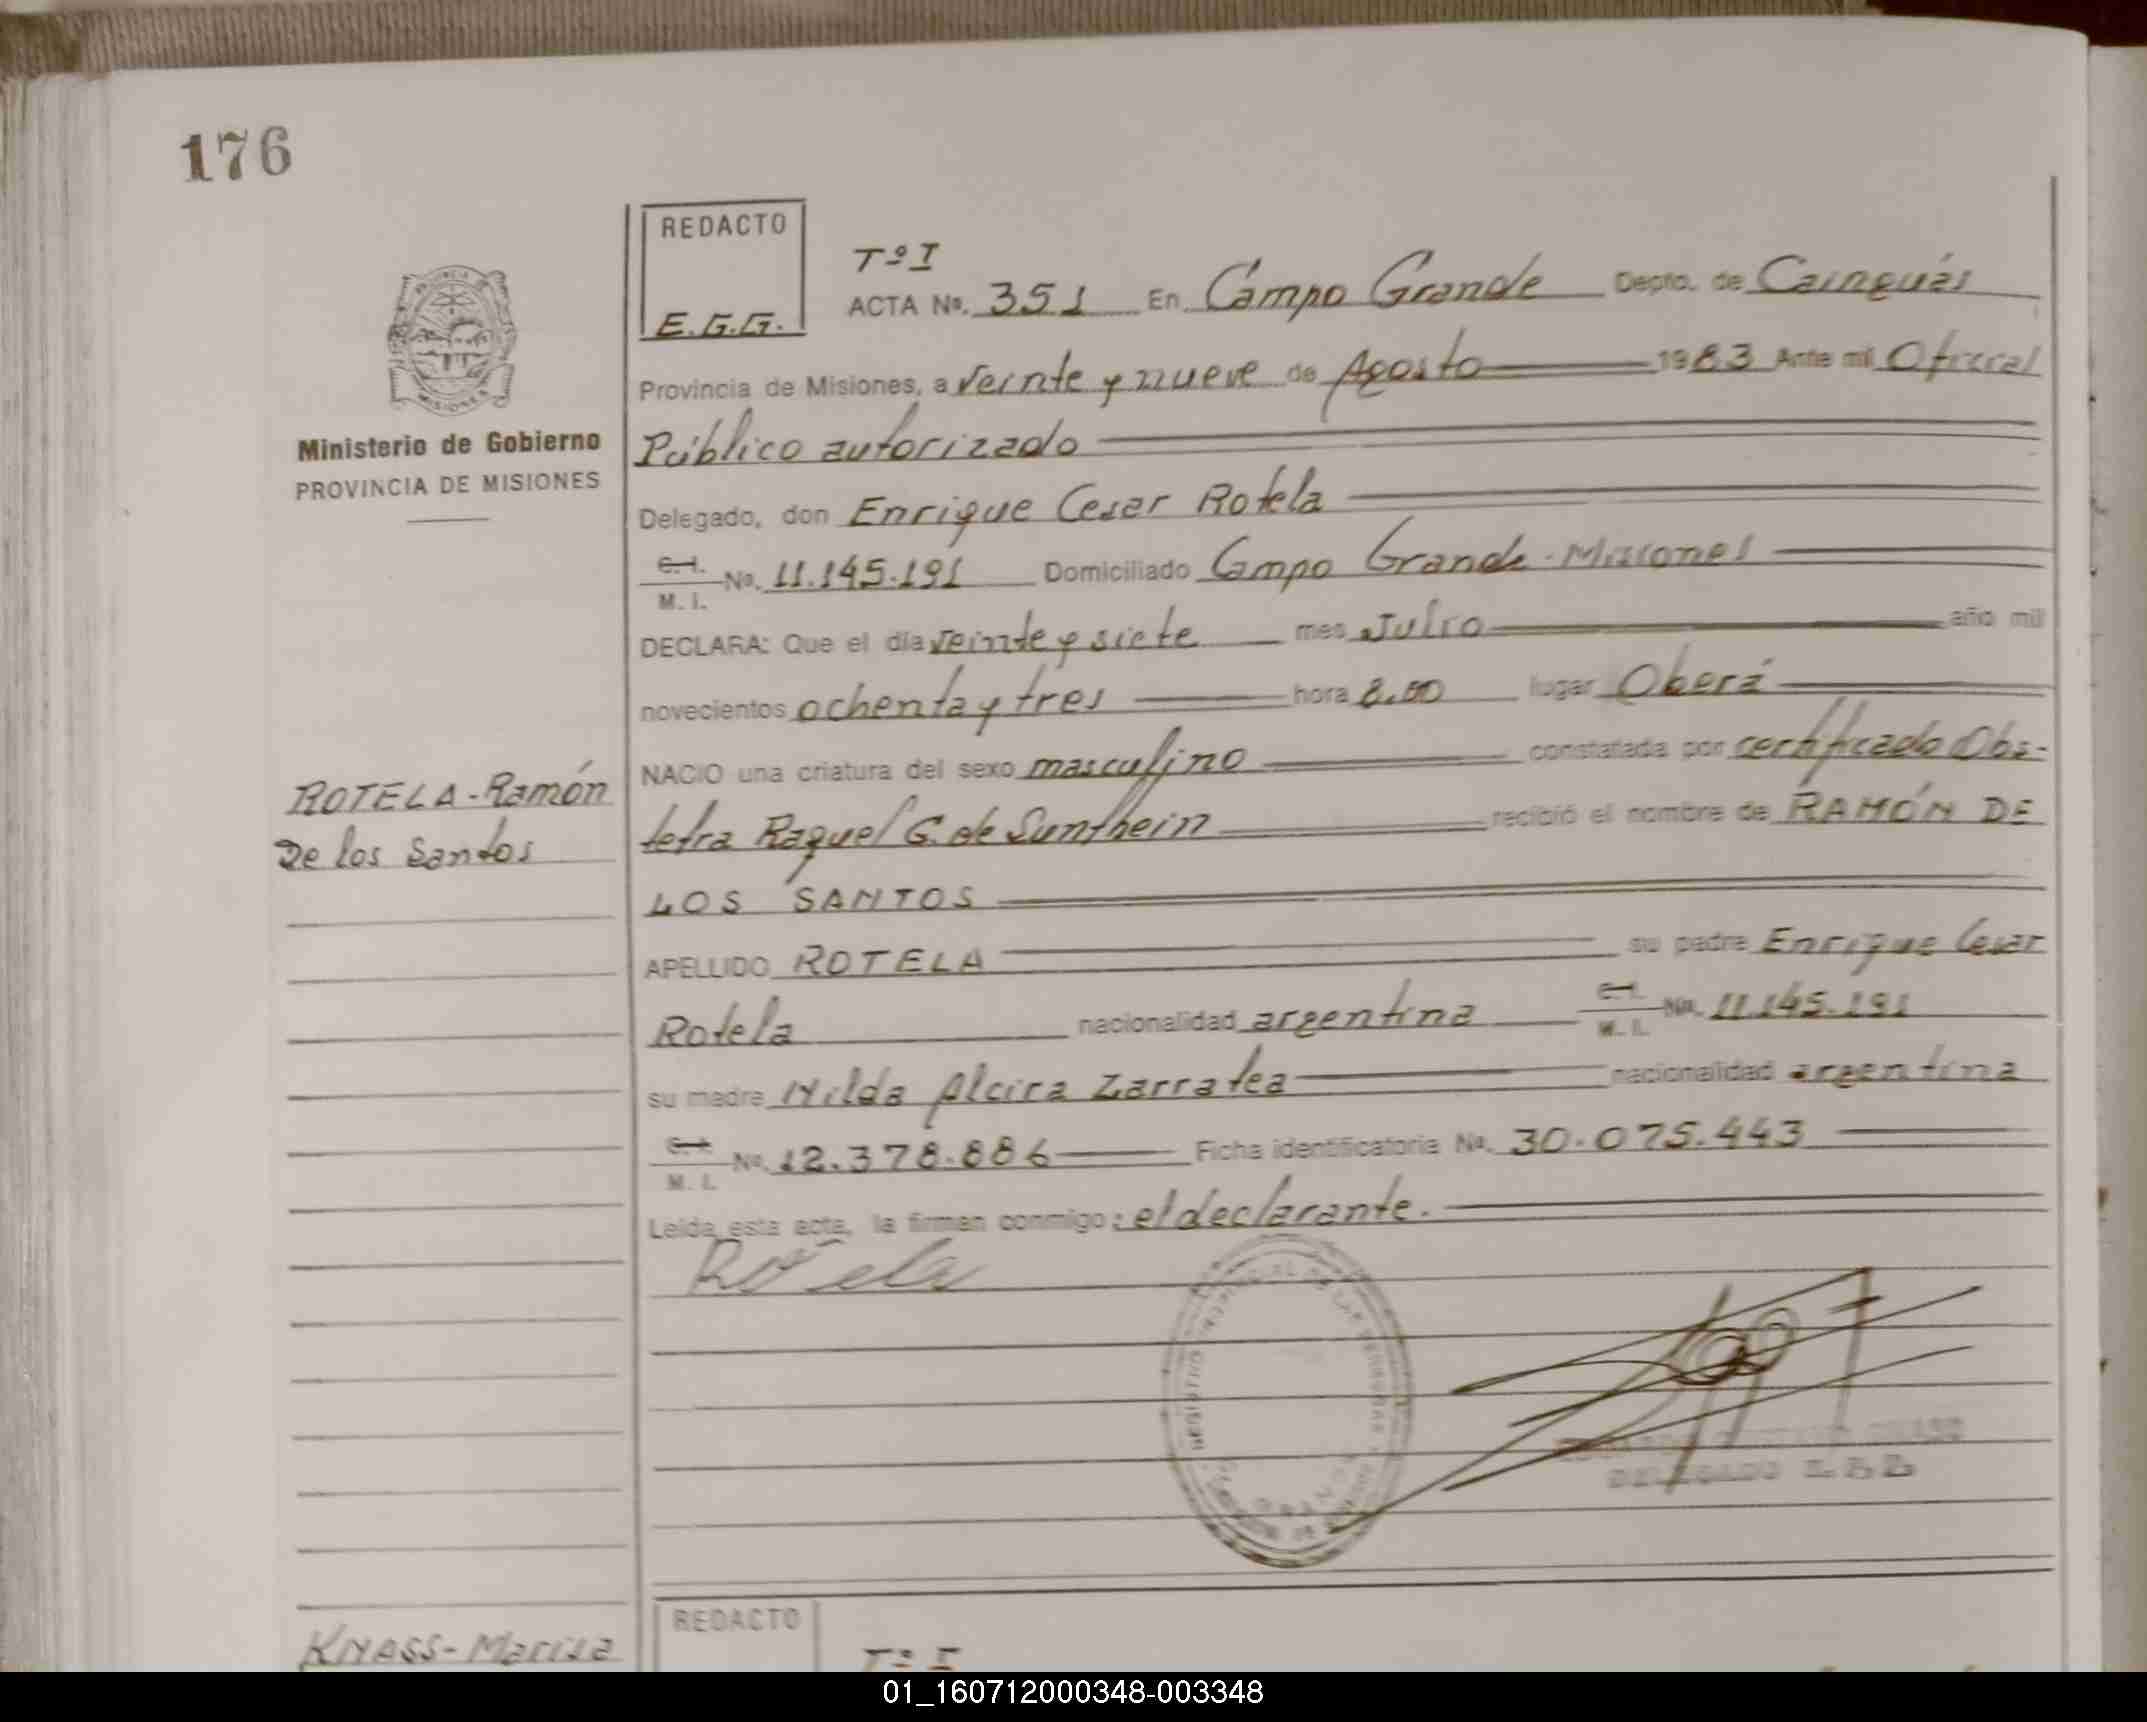 176
REDACTO
E.G.G.
Tº I
ACTA Nº. 351 En Campo Grande Depto. de Cainguás
Provincia de Misiones, a veinte y nueve de Agosto 1983 Ante mi Oficial
Público autorizado
Ministerio de Gobierno
PROVINCIA DE MISIONES
Delegado, don Enrique Cesar Rotela
C. I.
M. I. Nº. 11.145.191 Domiciliado Campo Grande - Misiones
DECLARA: Que el día veinte y siete mes Julio año mil
novecientos ochenta y tres hora 8.00 lugar Oberá
NACIO una criatura del sexo masculino constatada por certificado Obs-
ROTELA - Ramón
De los Santos
tetra Raquel G. de Sunthein recibió el nombre de RAMÓN DE
LOS SANTOS
APELLIDO ROTELA su padre Enrique Cesar
Rotela nacionalidad argentina C. I. M. I. Nº. 11.145.191
su madre Nilda Alcira Zarratea nacionalidad argentina
C. I.
M. I. Nº. 12.378.886 Ficha identificatoria Nº. 30.075.443
Leída esta acta, la firman conmigo: el declarante.
Rotela
DELEGADO
KNASS - Marisa
REDACTO
Tº I
01_160712000348-003348